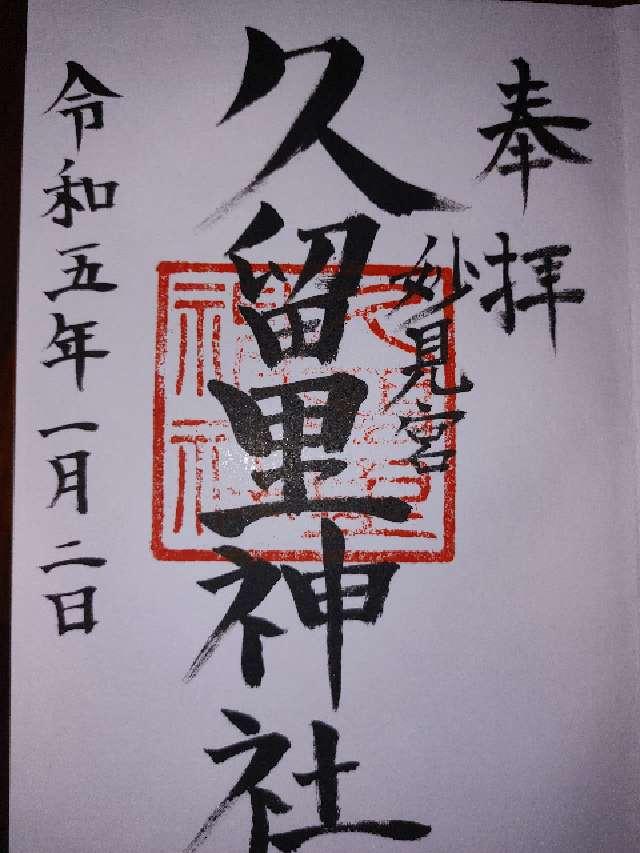 奉拝
妙見宮
久留里神社
令和五年一月二日